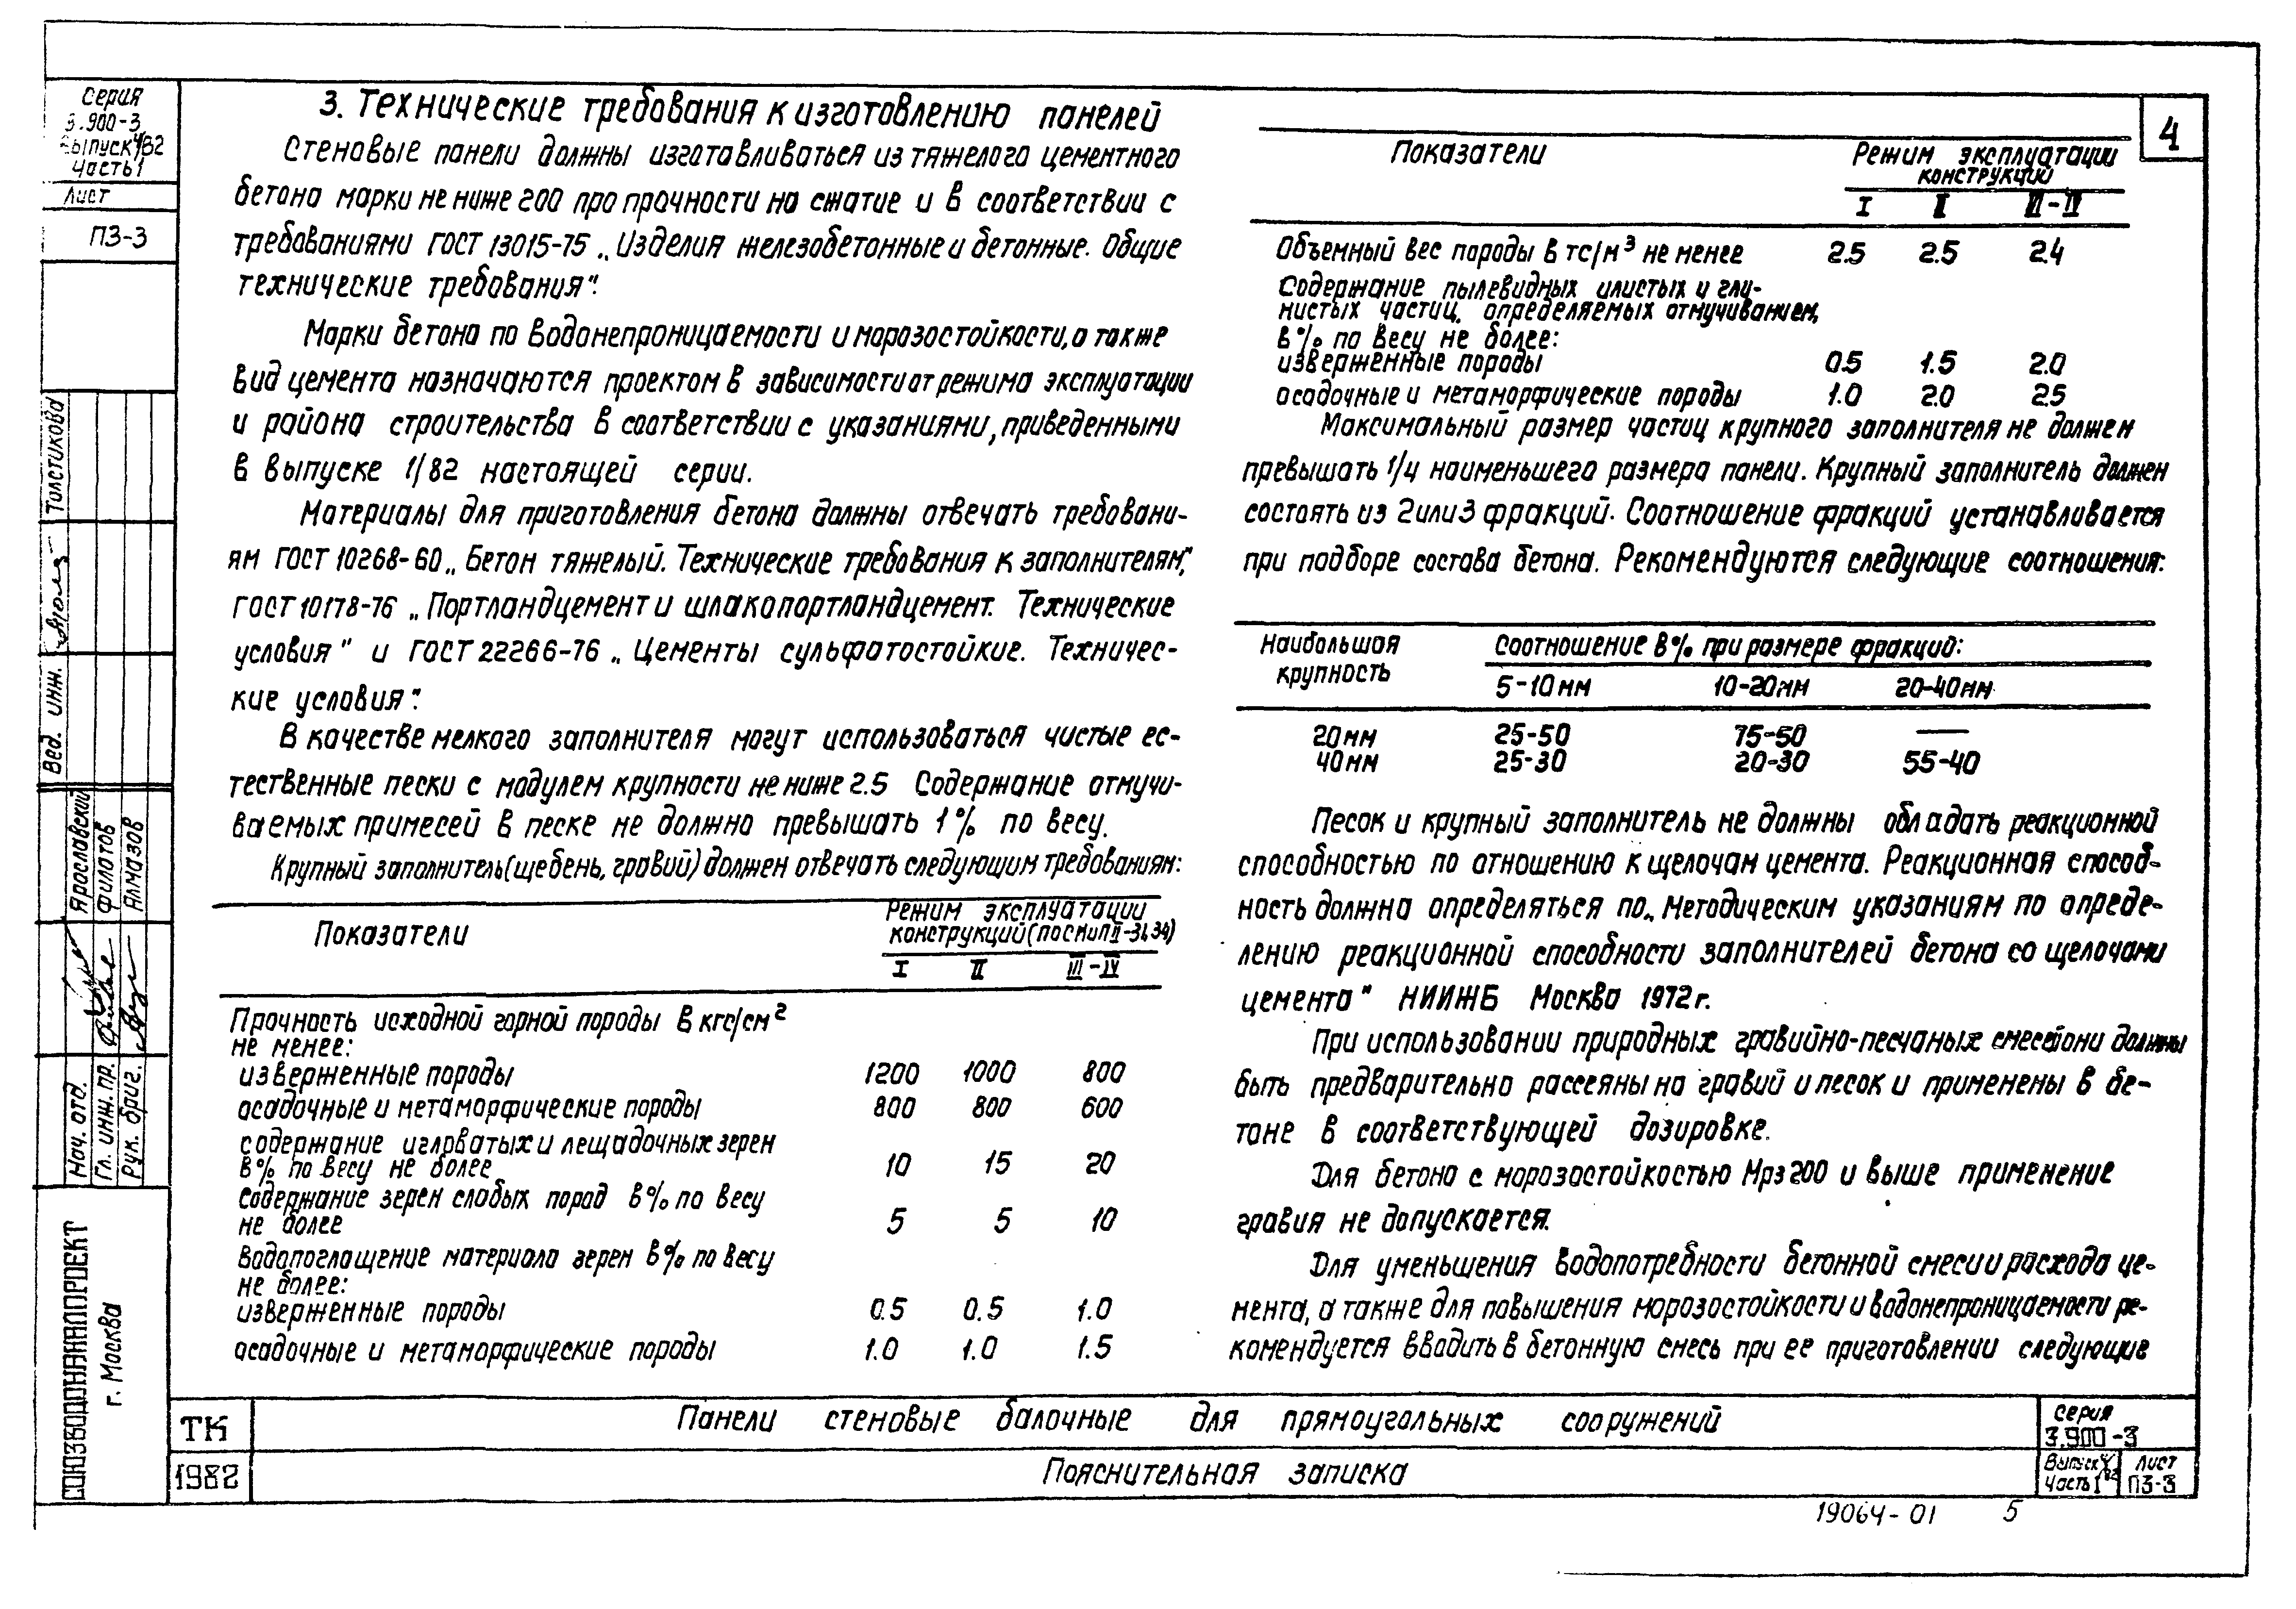 Серия
3.900-3
Выпуск 4/82
Часть 1
Лист
ПЗ-3
3. Технические требования к изготовлению панелей
Стеновые панели должны изготавливаться из тяжелого цементного
бетона марки не ниже 200 про прочности на сжатие и в соответствии с
требованиями ГОСТ 13015-75 „Изделия железобетонные и бетонные. Общие
технические требования".
Марки бетона по водонепроницаемости и морозостойкости, а также
вид цемента назначаются проектом в зависимости от режима эксплуатации
и района строительства в соответствии с указаниями, приведенными
в выпуске 1/82 настоящей серии.
Материалы для приготовления бетона должны отвечать требовани-
ям ГОСТ 10268-60 „Бетон тяжелый. Технические требования к заполнителям",
ГОСТ 10178-76 „Портландцемент и шлакопортландцемент. Технические
условия" и ГОСТ 22266-76 „Цементы сульфатостойкие. Техничес-
кие условия".
В качестве мелкого заполнителя могут использоваться чистые ес-
тественные пески с модулем крупности не ниже 2.5 Содержание отмучи-
ваемых примесей в песке не должно превышать 1% по весу.
Крупный заполнитель (щебень, гравий) должен отвечать следующим требованиям:
Показатели
Режим эксплуатации
конструкций (по СНиП II-31.34)
I II III-IV
Прочность исходной горной породы в кгс/см²
не менее:
изверженные породы 1200 1000 800
осадочные и метаморфические породы 800 800 600
содержание игловатых и лещадочных зерен
в% по весу не более 10 15 20
Содержание зерен слабых пород в% по весу
не более 5 5 10
Водопоглощение материала зерен в% по весу
не более:
изверженные породы 0.5 0.5 1.0
осадочные и метаморфические породы 1.0 1.0 1.5
4
Показатели
Режим эксплуатации
конструкций
I II III-IV
Объемный вес породы в тс/м³ не менее 2.5 2.5 2.4
Содержание пылевидных илистых и гли-
нистых частиц, определяемых отмучиванием,
в% по весу не более:
изверженные породы 0.5 1.5 2.0
осадочные и метаморфические породы 1.0 2.0 2.5
Максимальный размер частиц крупного заполнителя не должен
превышать 1/4 наименьшего размера панели. Крупный заполнитель должен
состоять из 2 или 3 фракций. Соотношение фракций устанавливается
при подборе состава бетона. Рекомендуются следующие соотношения:
Наибольшая
крупность
Соотношение в% при размере фракций:
5-10мм 10-20мм 20-40мм
20мм 25-50 75-50 —
40мм 25-30 20-30 55-40
Песок и крупный заполнитель не должны обладать реакционной
способностью по отношению к щелочам цемента. Реакционная способ-
ность должна определяться по „Методическим указаниям по опреде-
лению реакционной способности заполнителей бетона со щелочами
цемента" НИИЖБ Москва 1972г.
При использовании природных гравийно-песчаных смесей они должны
быть предварительно рассеяны на гравий и песок и применены в бе-
тоне в соответствующей дозировке.
Для бетона с морозостойкостью Мрз 200 и выше применение
гравия не допускается.
Для уменьшения водопотребности бетонной смеси и расхода це-
мента, а также для повышения морозостойкости и водонепроницаемости ре-
комендуется вводить в бетонную смесь при ее приготовлении следующие
Толстикова
Вед. инж.
Ярославский
Филатов
Алмазов
Нач. отд.
Гл. инж. пр.
Рук. бриг.
СОЮЗВОДОКАНАЛПРОЕКТ
г. Москва
ТК
1982
Панели стеновые балочные для прямоугольных сооружений
Пояснительная записка
Серия
3.900-3
Выпуск 4/82
Часть 1
Лист
ПЗ-3
19064-01 5